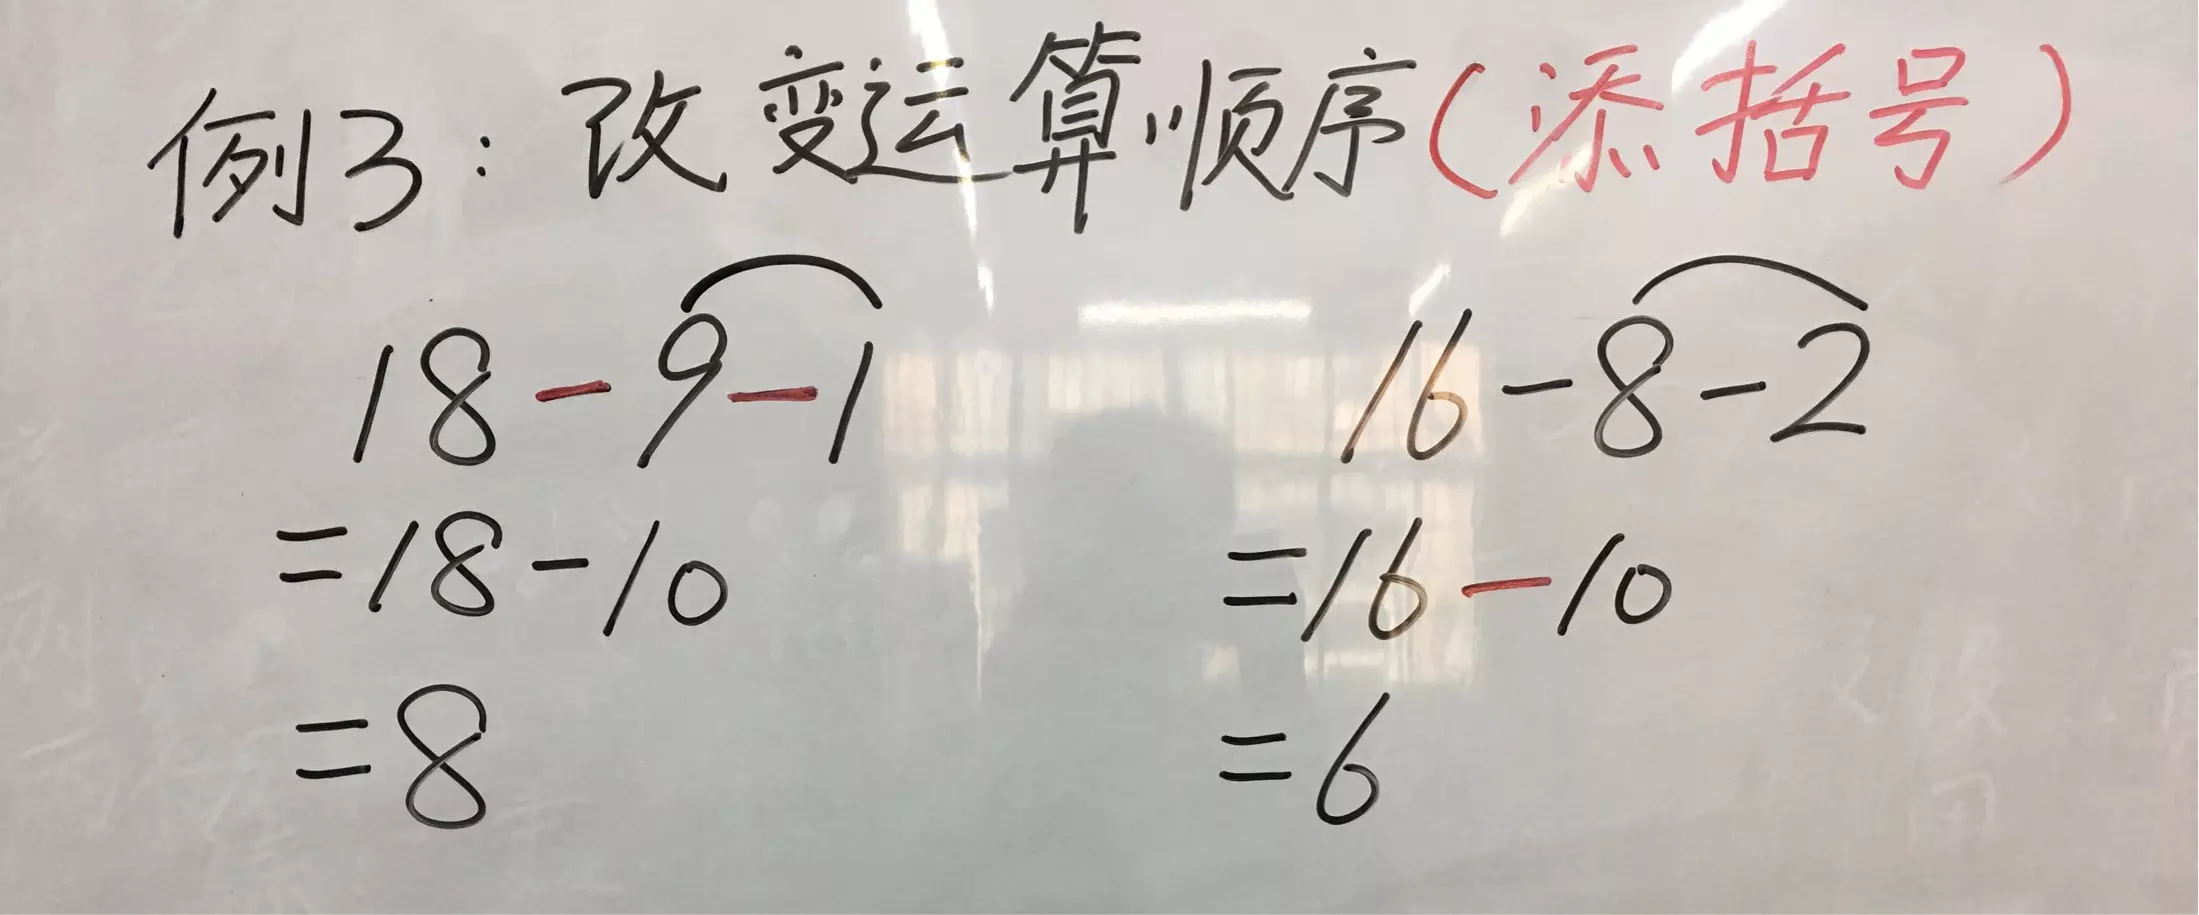 例3：改变运算顺序(添括号)
18-9-1
=18-10
=8
16-8-2
=16-10
=6